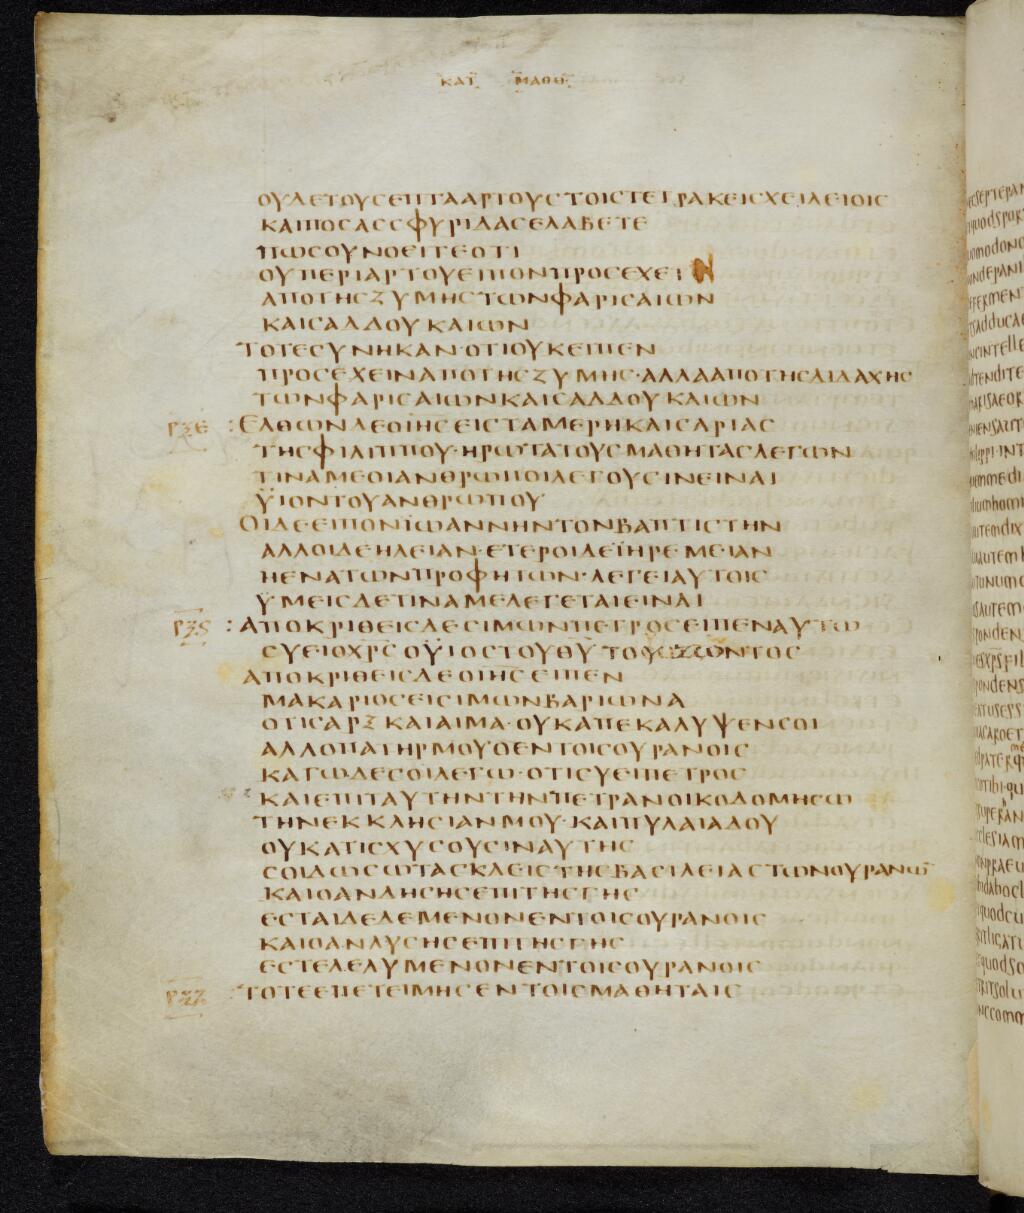 ΚΑΤ ΜΑΘΘ
ΟΥΔΕΤΟΥΣΕΠΤΑΑΡΤΟΥΣΤΟΙΣΤΕΤΡΑΚΕΙΣΧΕΙΛΕΙΟΙΣ
ΚΑΙΠΟΣΑΣΣΦΥΡΙΔΑΣΕΛΑΒΕΤΕ
ΠΩΣΟΥΝΟΕΙΤΕΟΤΙ
ΟΥΠΕΡΙΑΡΤΟΥΕΙΠΟΝΠΡΟΣΕΧΕΙΝ
ΑΠΟΤΗΣΖΥΜΗΣΤΩΝΦΑΡΙΣΑΙΩΝ
ΚΑΙΣΑΔΔΟΥΚΑΙΩΝ
ΤΟΤΕΣΥΝΗΚΑΝ·ΟΤΙΟΥΚΕΙΠΕΝ
ΠΡΟΣΕΧΕΙΝΑΠΟΤΗΣΖΥΜΗΣ·ΑΛΛΑΑΠΟΤΗΣΔΙΔΑΧΗΣ
ΤΩΝΦΑΡΙΣΑΙΩΝΚΑΙΣΑΔΔΟΥΚΑΙΩΝ
ΡΞΕ :ΕΛΘΩΝΔΕΟΙΗΣΕΙΣΤΑΜΕΡΗΚΑΙΣΑΡΙΑΣ
ΤΗΣΦΙΛΙΠΠΟΥ·ΗΡΩΤΑΤΟΥΣΜΑΘΗΤΑΣΛΕΓΩΝ
ΤΙΝΑΜΕΟΙΑΝΘΡΩΠΟΙΛΕΓΟΥΣΙΝΕΙΝΑΙ
ΫΙΟΝΤΟΥΑΝΘΡΩΠΟΥ
ΟΙΔΕΕΙΠΟΝΪΩΑΝΝΗΝΤΟΝΒΑΠΤΙΣΤΗΝ
ΑΛΛΟΙΔΕΗΛΕΙΑΝ·ΕΤΕΡΟΙΔΕΪΗΡΕΜΕΙΑΝ
ΗΕΝΑΤΩΝΠΡΟΦΗΤΩΝ·ΛΕΓΕΙΑΥΤΟΙΣ
ΫΜΕΙΣΔΕΤΙΝΑΜΕΛΕΓΕΤΑΙΕΙΝΑΙ
ΡΞϚ :ΑΠΟΚΡΙΘΕΙΣΔΕΣΙΜΩΝΠΕΤΡΟΣΕΙΠΕΝΑΥΤΩ
ΣΥΕΙΟΧΡΣ ΟΫΙΟΣΤΟΥΘΥ ΤΟΥ
ΑΠΟΚΡΙΘΕΙΣΔΕΟΙΗΣΕΙΠΕΝ
ΜΑΚΑΡΙΟΣΕΙΣΙΜΩΝΒΑΡΙΩΝΑ
ΟΤΙΣΑΡΞΚΑΙΑΙΜΑ·ΟΥΚΑΠΕΚΑΛΥΨΕΝΣΟΙ
ΑΛΛΟΠΑΤΗΡΜΟΥΟΕΝΤΟΙΣΟΥΡΑΝΟΙΣ
ΚΑΓΩΔΕΣΟΙΛΕΓΩ·ΟΤΙΣΥΕΙΠΕΤΡΟΣ
ΚΑΙΕΠΙΤΑΥΤΗΝΤΗΝΠΕΤΡΑΝΟΙΚΟΔΟΜΗΣΩ
ΤΗΝΕΚΚΛΗΣΙΑΝΜΟΥ·ΚΑΙΠΥΛΑΙΑΔΟΥ
ΟΥΚΑΤΙΣΧΥΣΟΥΣΙΝΑΥΤΗΣ
ΣΟΙΔΩΣΩΤΑΣΚΛΕΙΣΤΗΣΒΑΣΙΛΕΙΑΣΤΩΝΟΥΡΑΝΩ̅
ΚΑΙΟΑΝΔΗΣΗΣΕΠΙΤΗΣΓΗΣ
ΕΣΤΑΙΔΕΔΕΜΕΝΟΝΕΝΤΟΙΣΟΥΡΑΝΟΙΣ
ΚΑΙΟΑΝΛΥΣΗΣΕΠΙΤΗΣΓΗΣ
ΕΣΤΕΛΕΛΥΜΕΝΟΝΕΝΤΟΙΣΟΥΡΑΝΟΙΣ
ΡΞΖ :ΤΟΤΕΕΠΕΤΕΙΜΗΣΕΝΤΟΙΣΜΑΘΗΤΑΙΣ